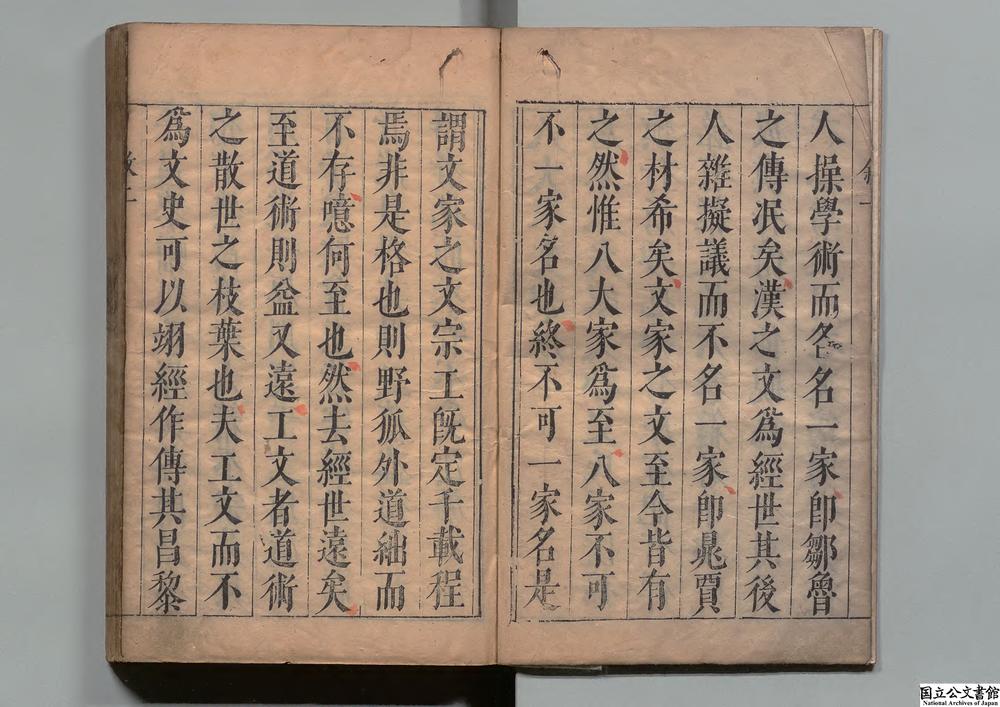 人操學術而名名一家卽鄒魯
之傳冺矣漢之文爲經世其後
人雜擬議而不名一家卽鼂賈
之材希矣文家之文至今皆有
之然惟八大家爲至八家不可
不一家名也終不可一家名是
謂文家之文宗工旣定千載程
焉非是格也則野狐外道絀而
不存噫何至也然去經世遠矣
至道術則益又遠工文者道術
之散世之枝葉也夫工文而不
爲文史可以翊經作傳其昌黎
国立公文書館
National Archives of Japan